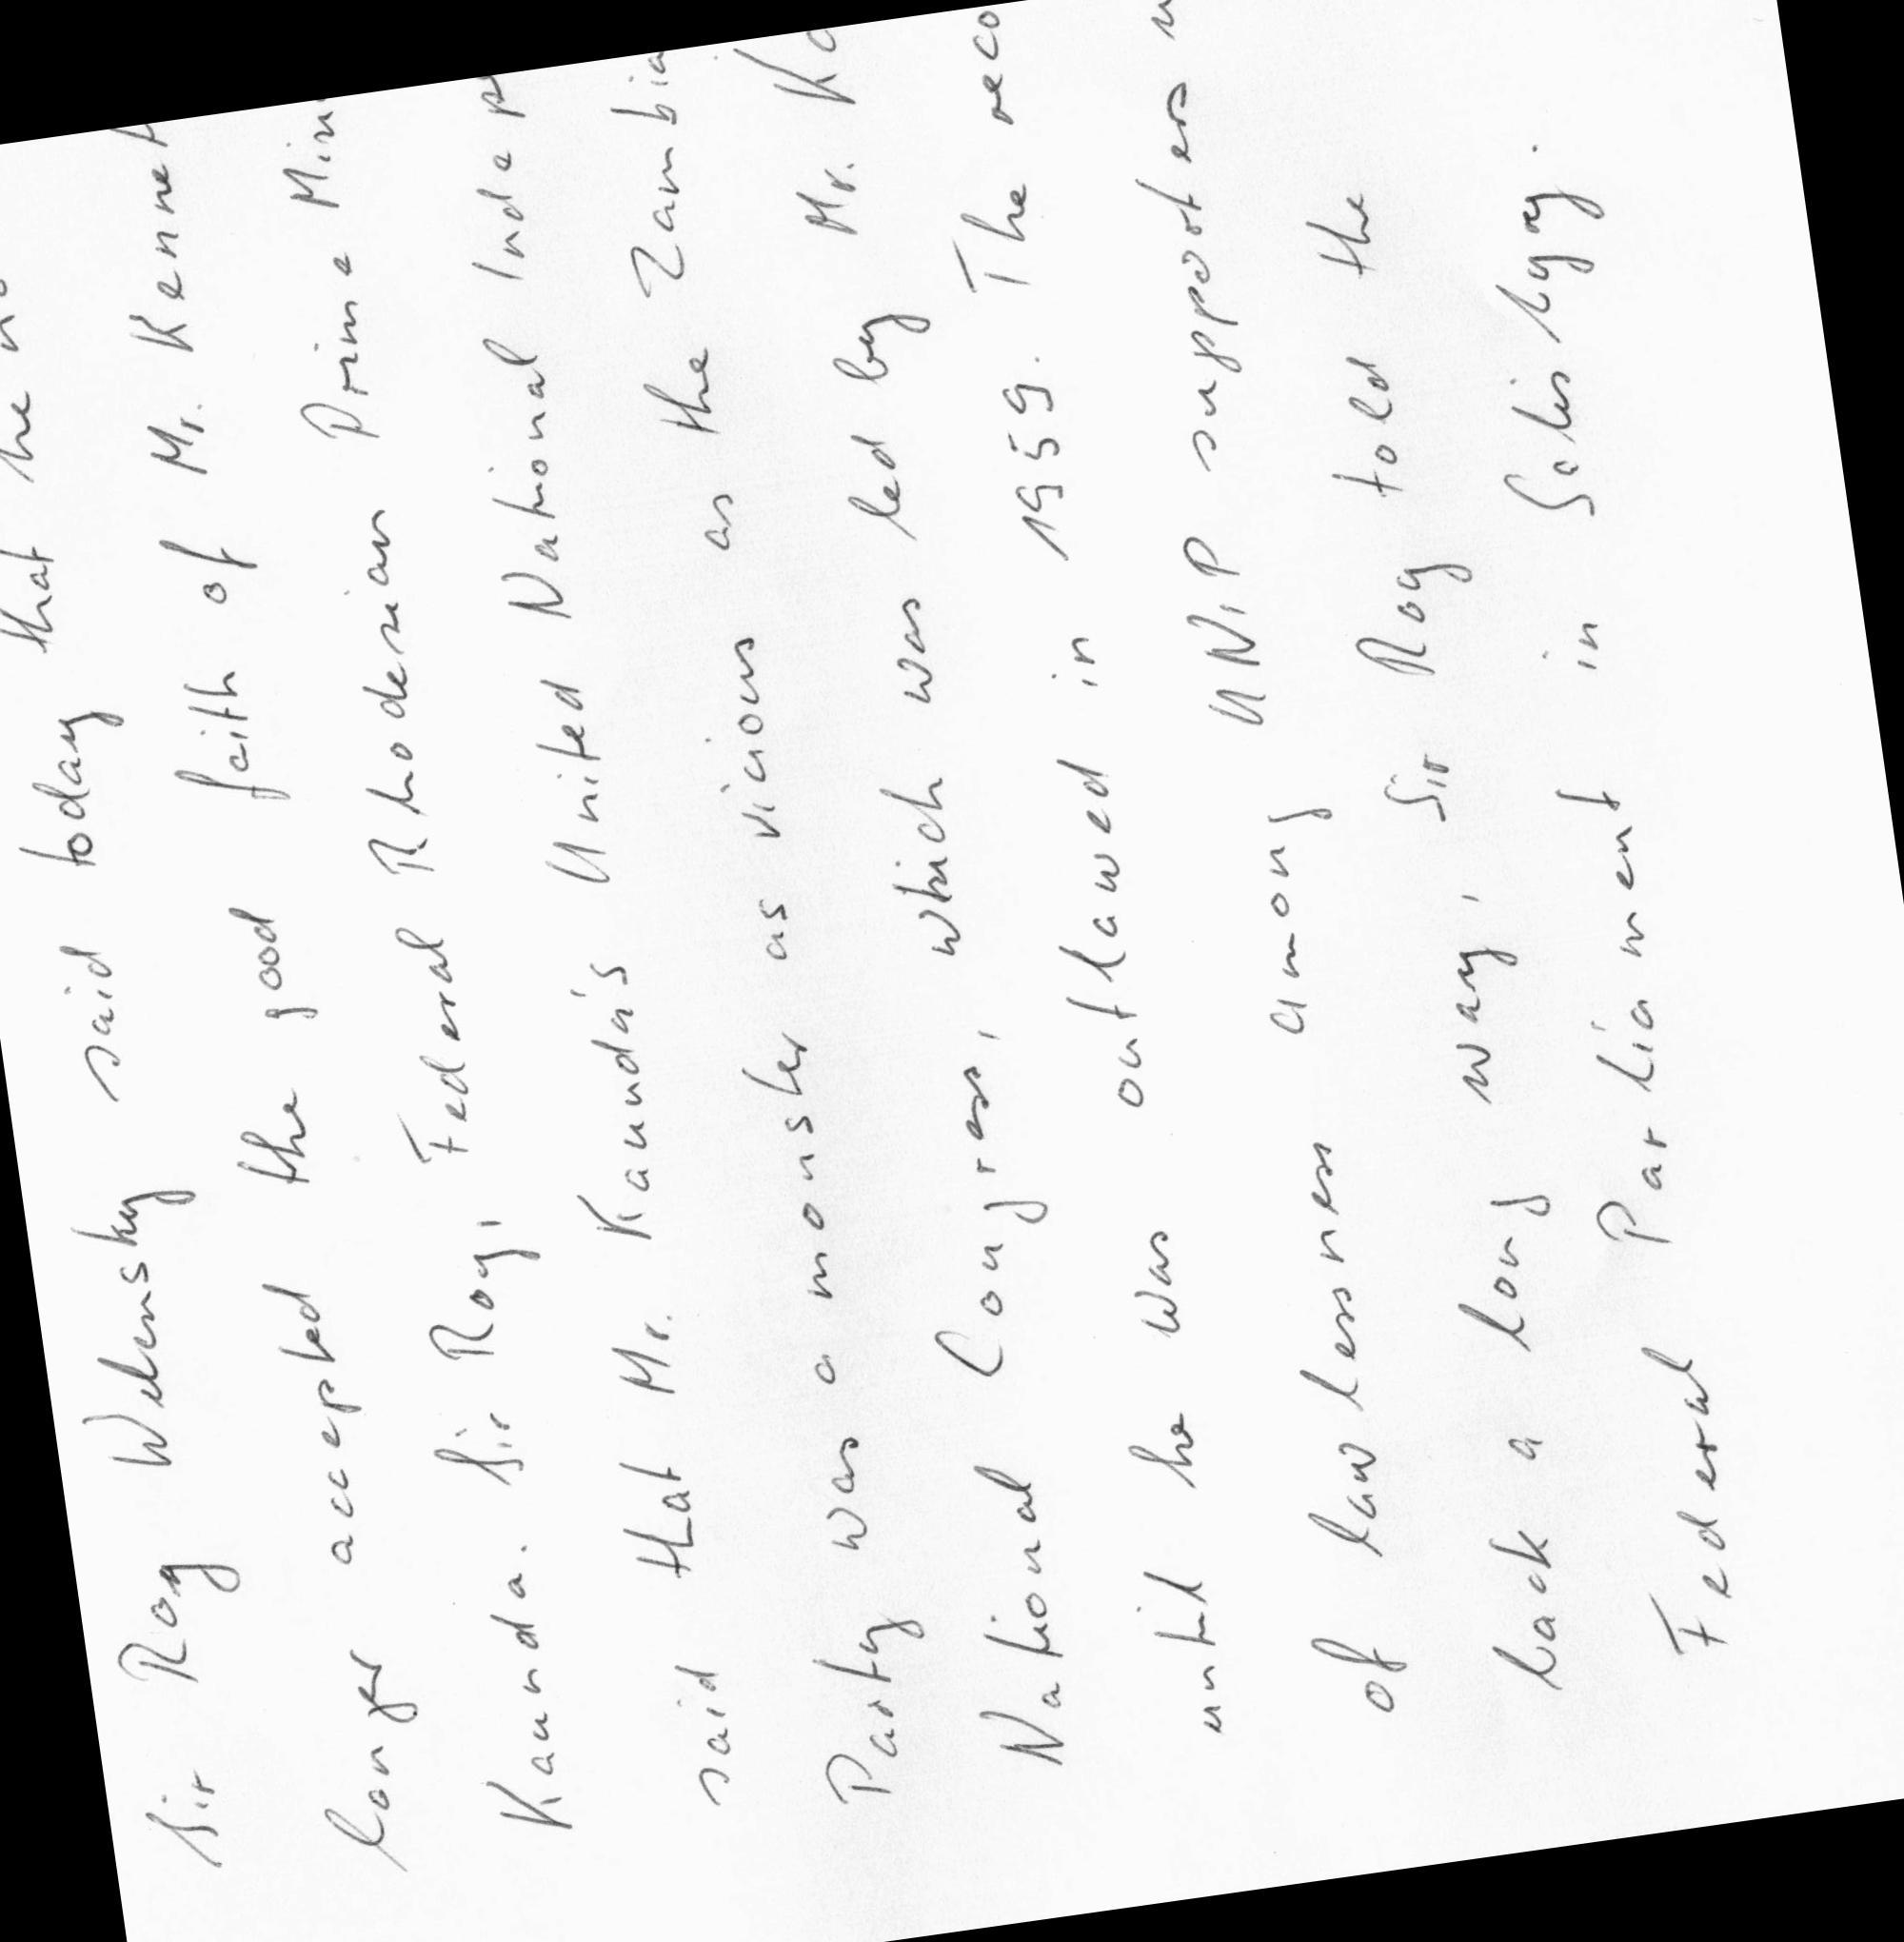 Sir Roy Welensky said today that he no
longer accepted the good faith of Mr. Kennet
Kaunda. Sir Roy, Federal Rhodesian Prime Min
said that Mr. Kaunda's United National Indep
Party was a monster as vicious as the Zambia
National Congress, which was led by Mr. Ka
until he was outlawed in 1959. The reco
of lawlessness among UNIP supporters
back a long way, Sir Roy told the
Federal Parliament in Salisbyry.